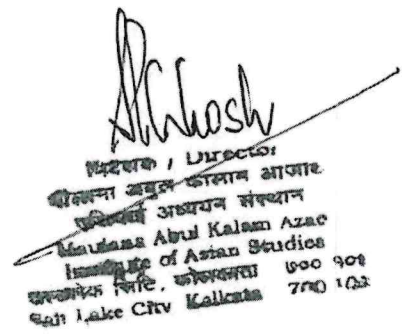 निदेशक / Director
मौलाना अबुल कालाम आजाद
एशियाई अध्ययन संस्थान
Maulana Abul Kalam Azad
Institute of Asian Studies
सिटि, कोलकाता
Salt Lake City Kolkata 700 102